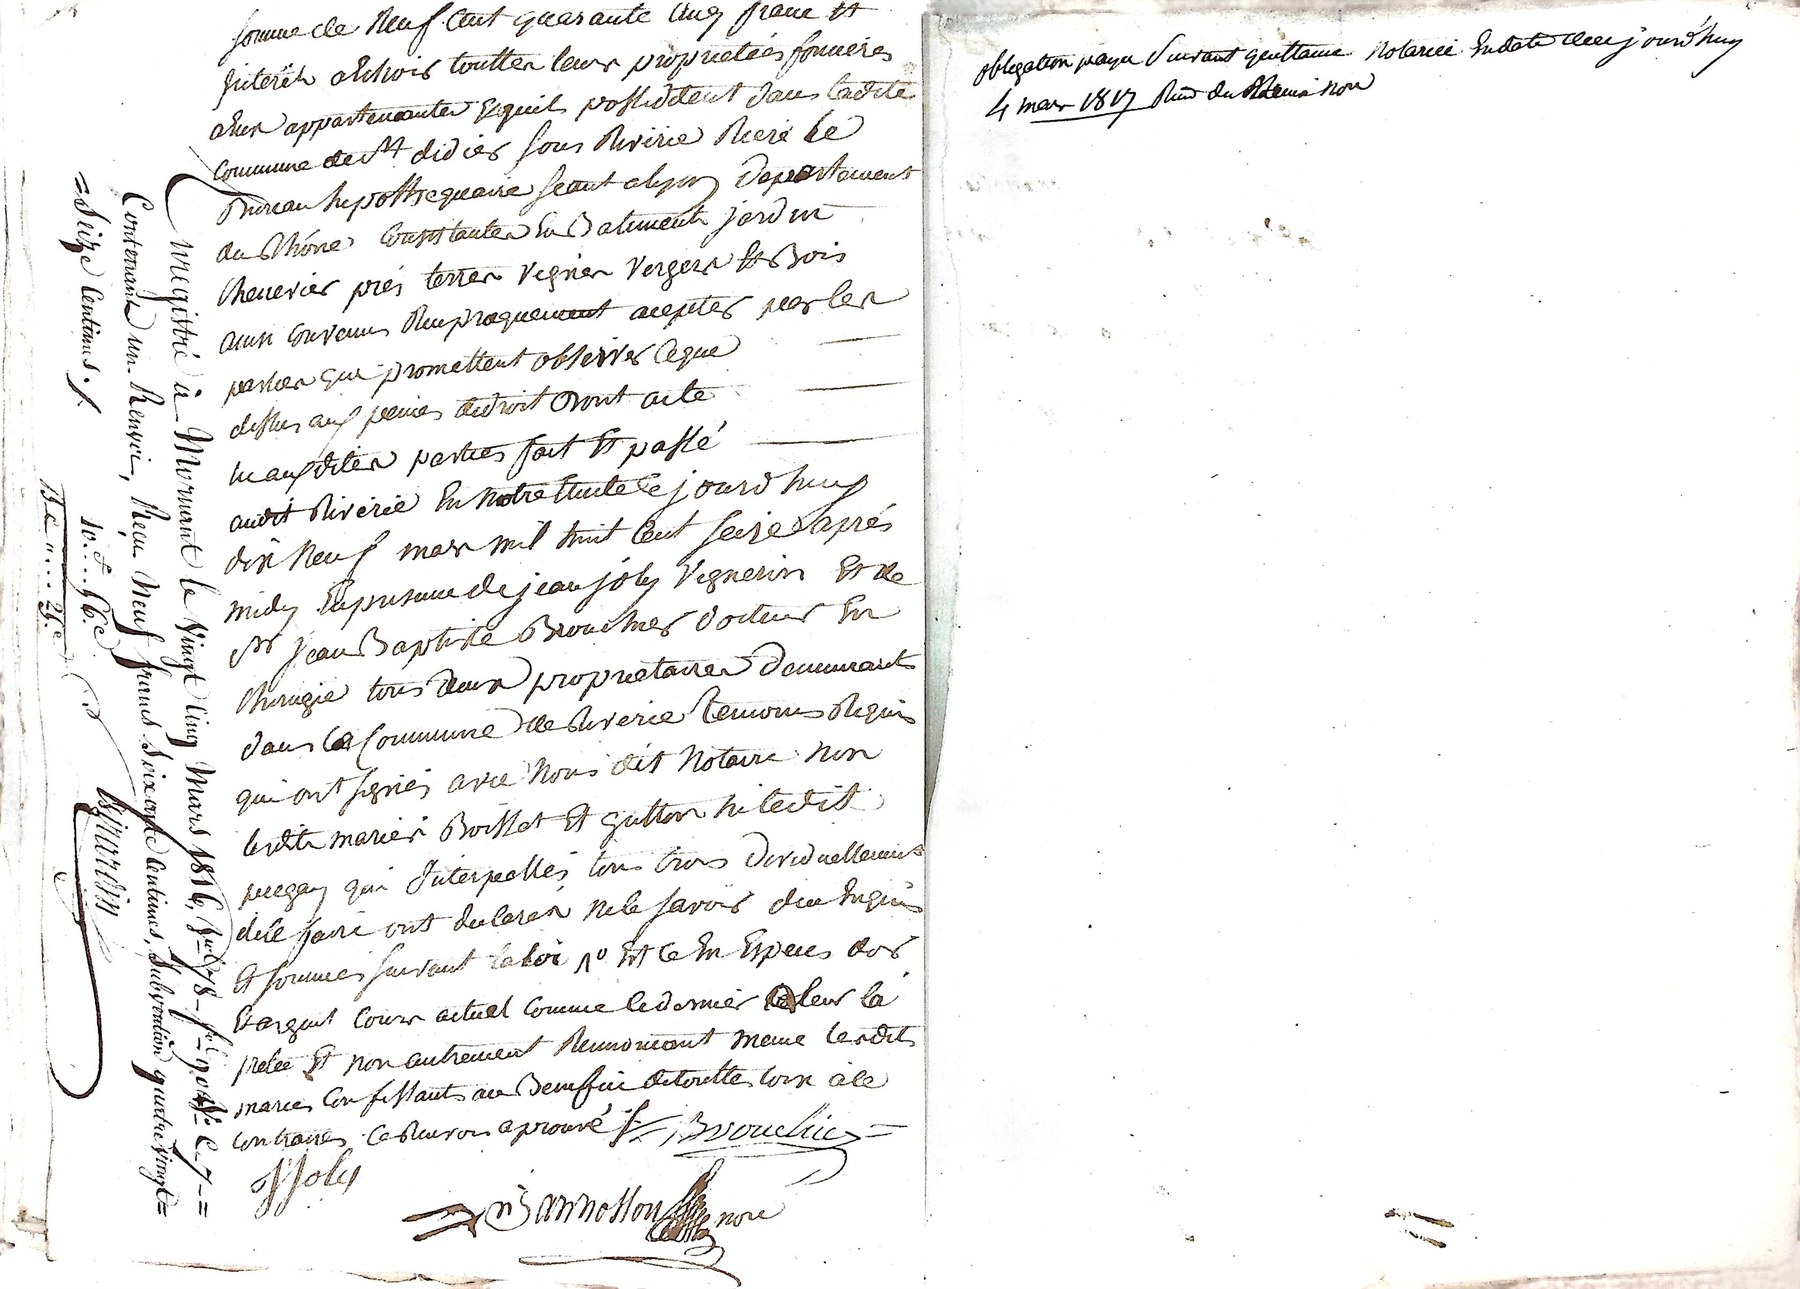 somme de Neuf Cent quarante Cinq franc Et
Interêts a Echoir touttes leurs proprietées foncières
a Eux appartenantes Et quils possedent dans ladite
Commune de St didier sous Riverie Riere le
Bureau hipothequaire seant a lyon Departement
du Rhône Consistantes En Batiments jardin
Chenevier prés terres Vignes Vergers Et Bois
ainsi Convenus Reciproquement acceptes par les
parties qui promettent observer Ceque
dessus aux peines de droit Dont acte
lu auxdites parties fait Et passé
audit Riverie En Notre Etude Ce jourd'huy
dix Neuf mars mil huit Cent Seize après
midy En presence de jean joly Vigneron Et de
Mr jean Baptiste Brouchier docteur En
Chirugie tous deux proprietaires Demeurants
dans la Commune de Riverie temoins Requis
qui ont signés avec Nous dit Notaire Non
lesdits mariés Boisset Et gutton Ni ledit
qui Interpellés tous trois
de le faire ont declarés Ne le savoir de Enquis
Et sommés suivant la loi Et Ce En Especes dor
Et argent Cours actuel Comme le dernier leur la
preté Et Non autrement Renoncant meme lesdits
mariés au Benefice de touttes loix à Ce
Contraires Ce Renvoi aprouvé
Brouchier
J Joly
Bannosson Nore
Enregistré à Mornant le Vingt Cinq Mars 1816,
Contenant un Renvoi, Reçu Neuf francs Soixante Centimes, Subvention quatre Vingt =
= Seize Centimes./.
10.f..56.c
Girardin
obligation payee Suivant quittance Notariée En date de Ce jourd'huy
4 mars 1817